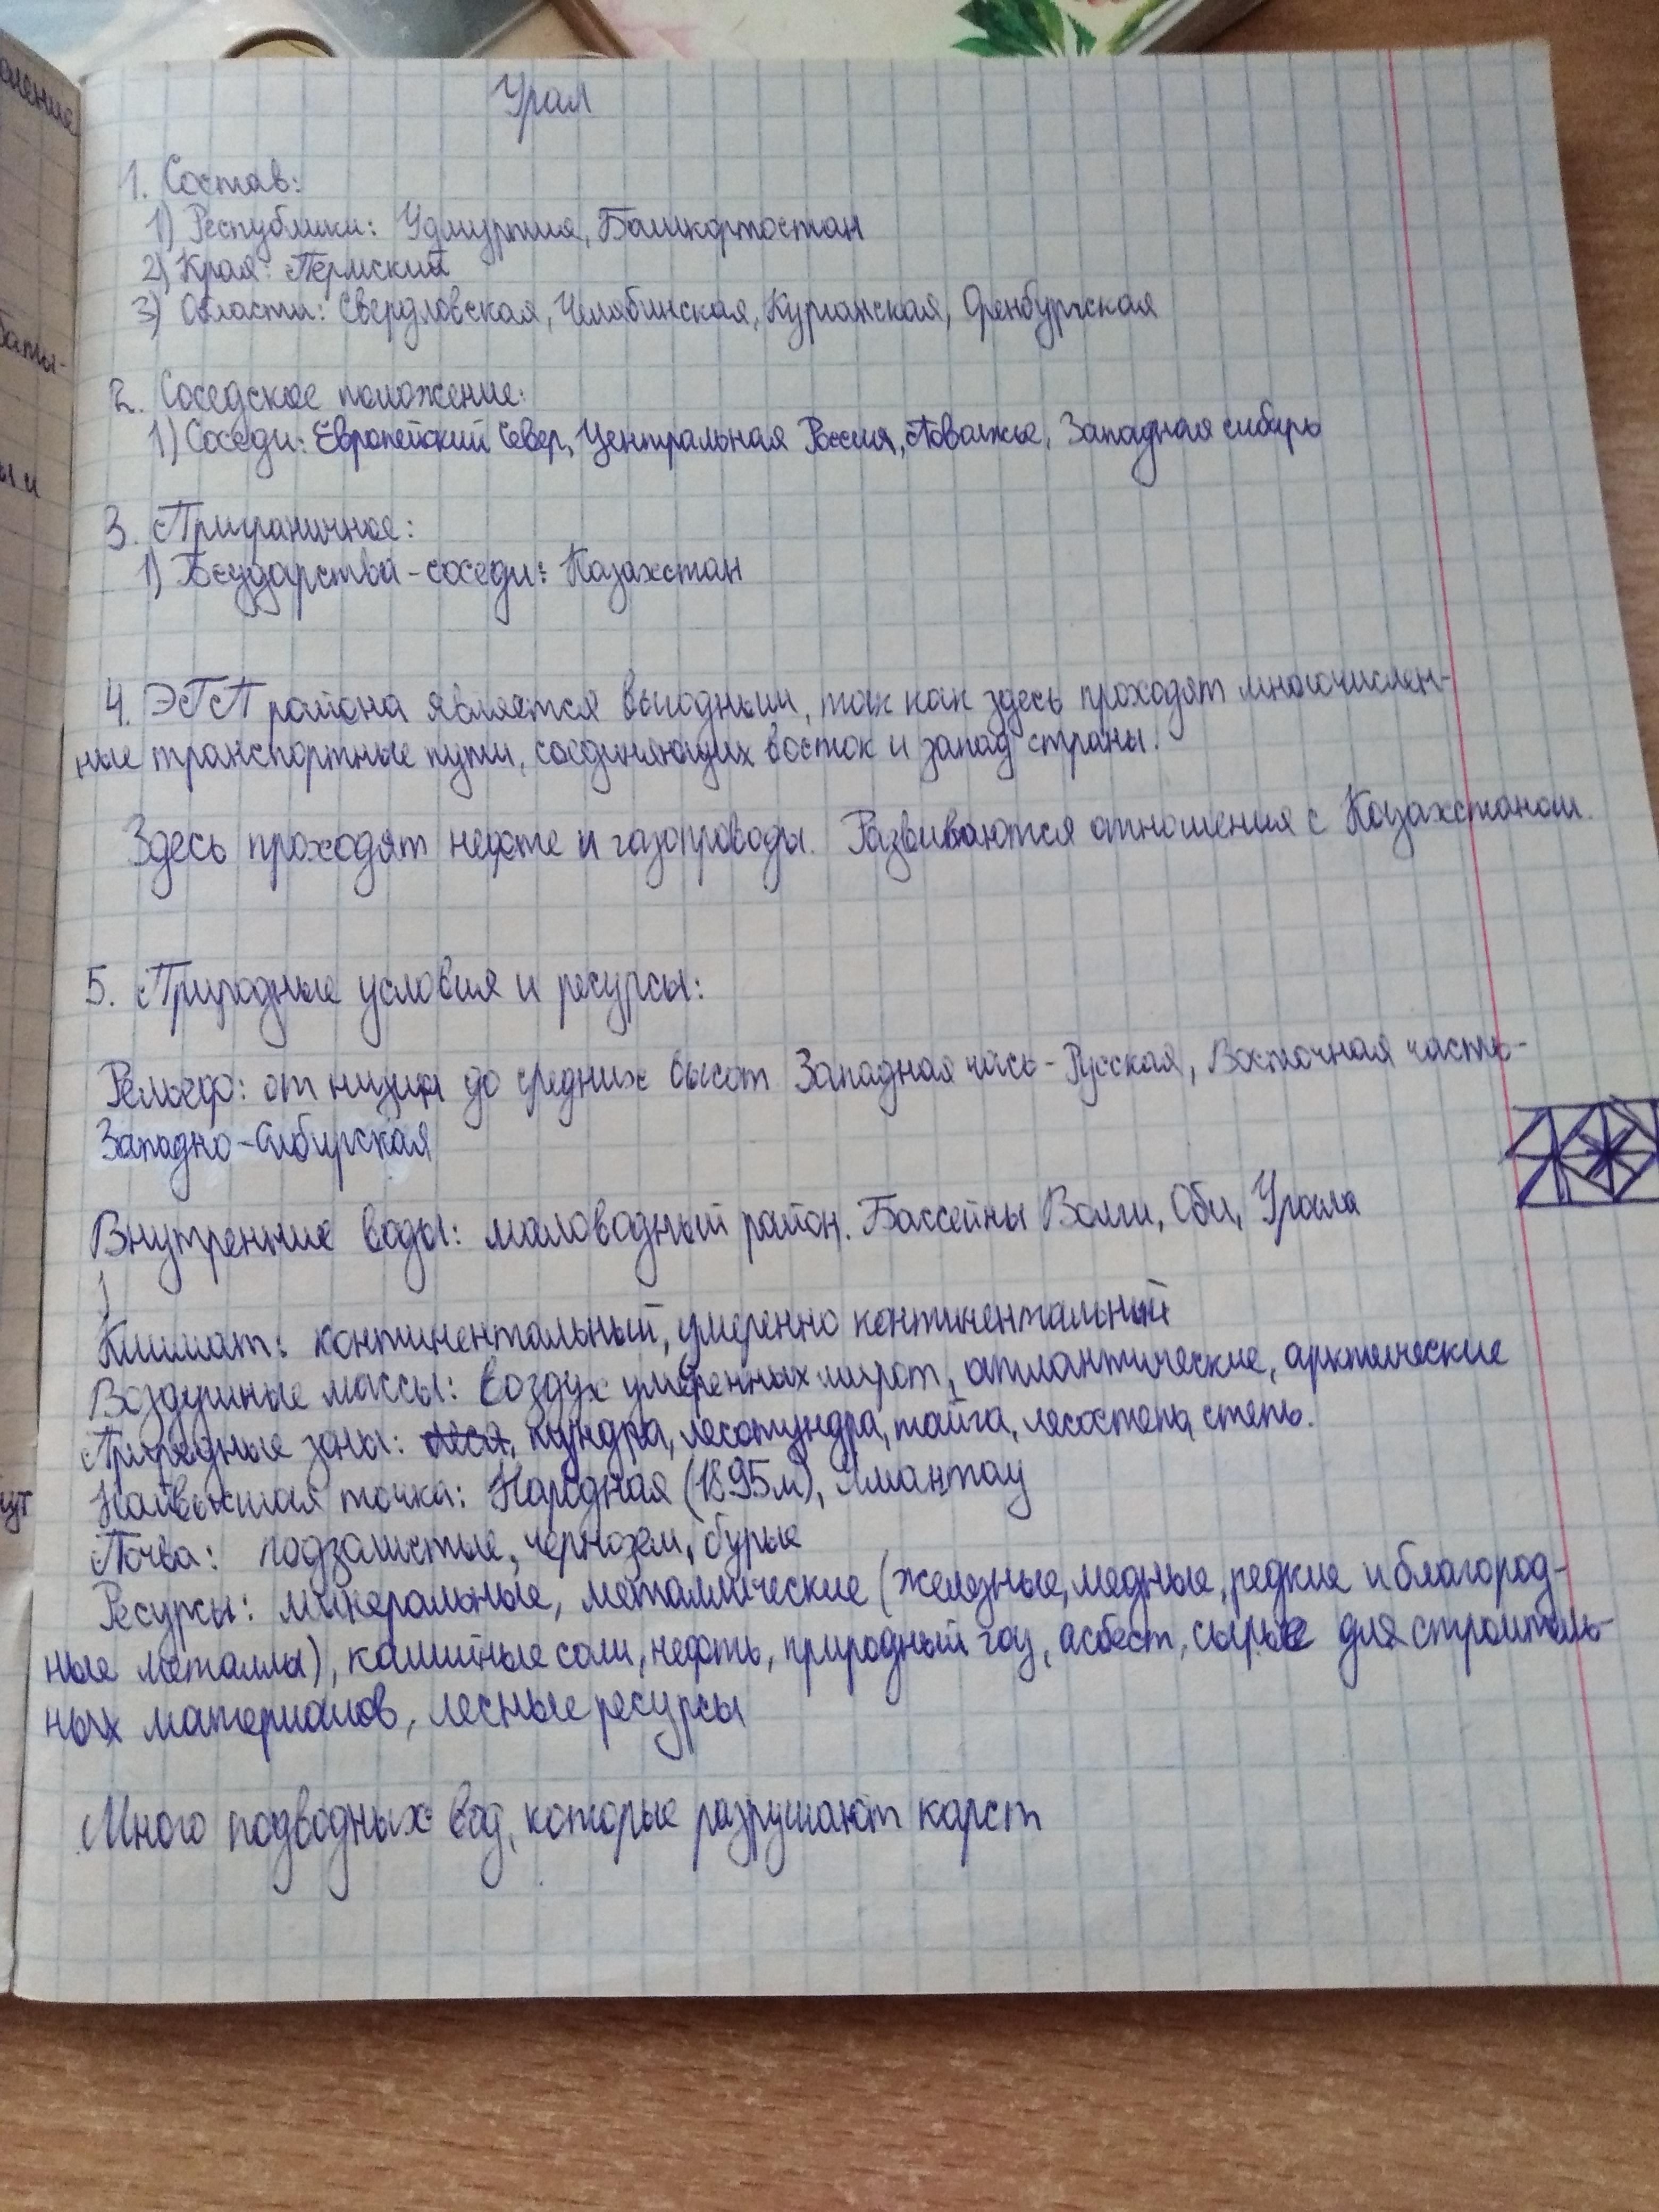 Урал
1. Состав:
1) Республики: Удмуртия, Башкортостан
2) Края: Пермский
3) Области: Свердловская, Челябинская, Курганская, Оренбургская
2. Соседское положение:
1) Соседи: Европейский Север, Центральная Россия, Поволжье, Западная сибирь
3. Приграничное:
1) Государства-соседи: Казахстан
4. ЭГП района является выгодным, так как здесь проходят многочислен-
ные транспортные пути, соединяющих восток и запад страны.
Здесь проходят нефте и газопроводы. Развиваются отношения с Казахстаном.
5. Природные условия и ресурсы:
Рельеф: от низин до средних высот Западная чась - Русская, Восточная часть -
Западно-Сибирская
Внутренние воды: маловодный район. Бассейны Волги, Оби, Урала
Климат: континентальный, умеренно континентальный
Воздушные массы: воздух умеренных широт, атлантические, арктические
Природные зоны: леса, тундра, лесотундра, тайга, лесостепь, степь.
Наивысшая точка: Народная (1895м), Ямантау
Почва: подзолистые, чернозем, бурые
Ресурсы: минеральные, металлические (железные, медные, редкие и благород-
ные металлы), калийные соли, нефть, природный газ, асбест, сырье для строитель-
ных материалов, лесные ресурсы
Много подводных вод, которые разрушают карст